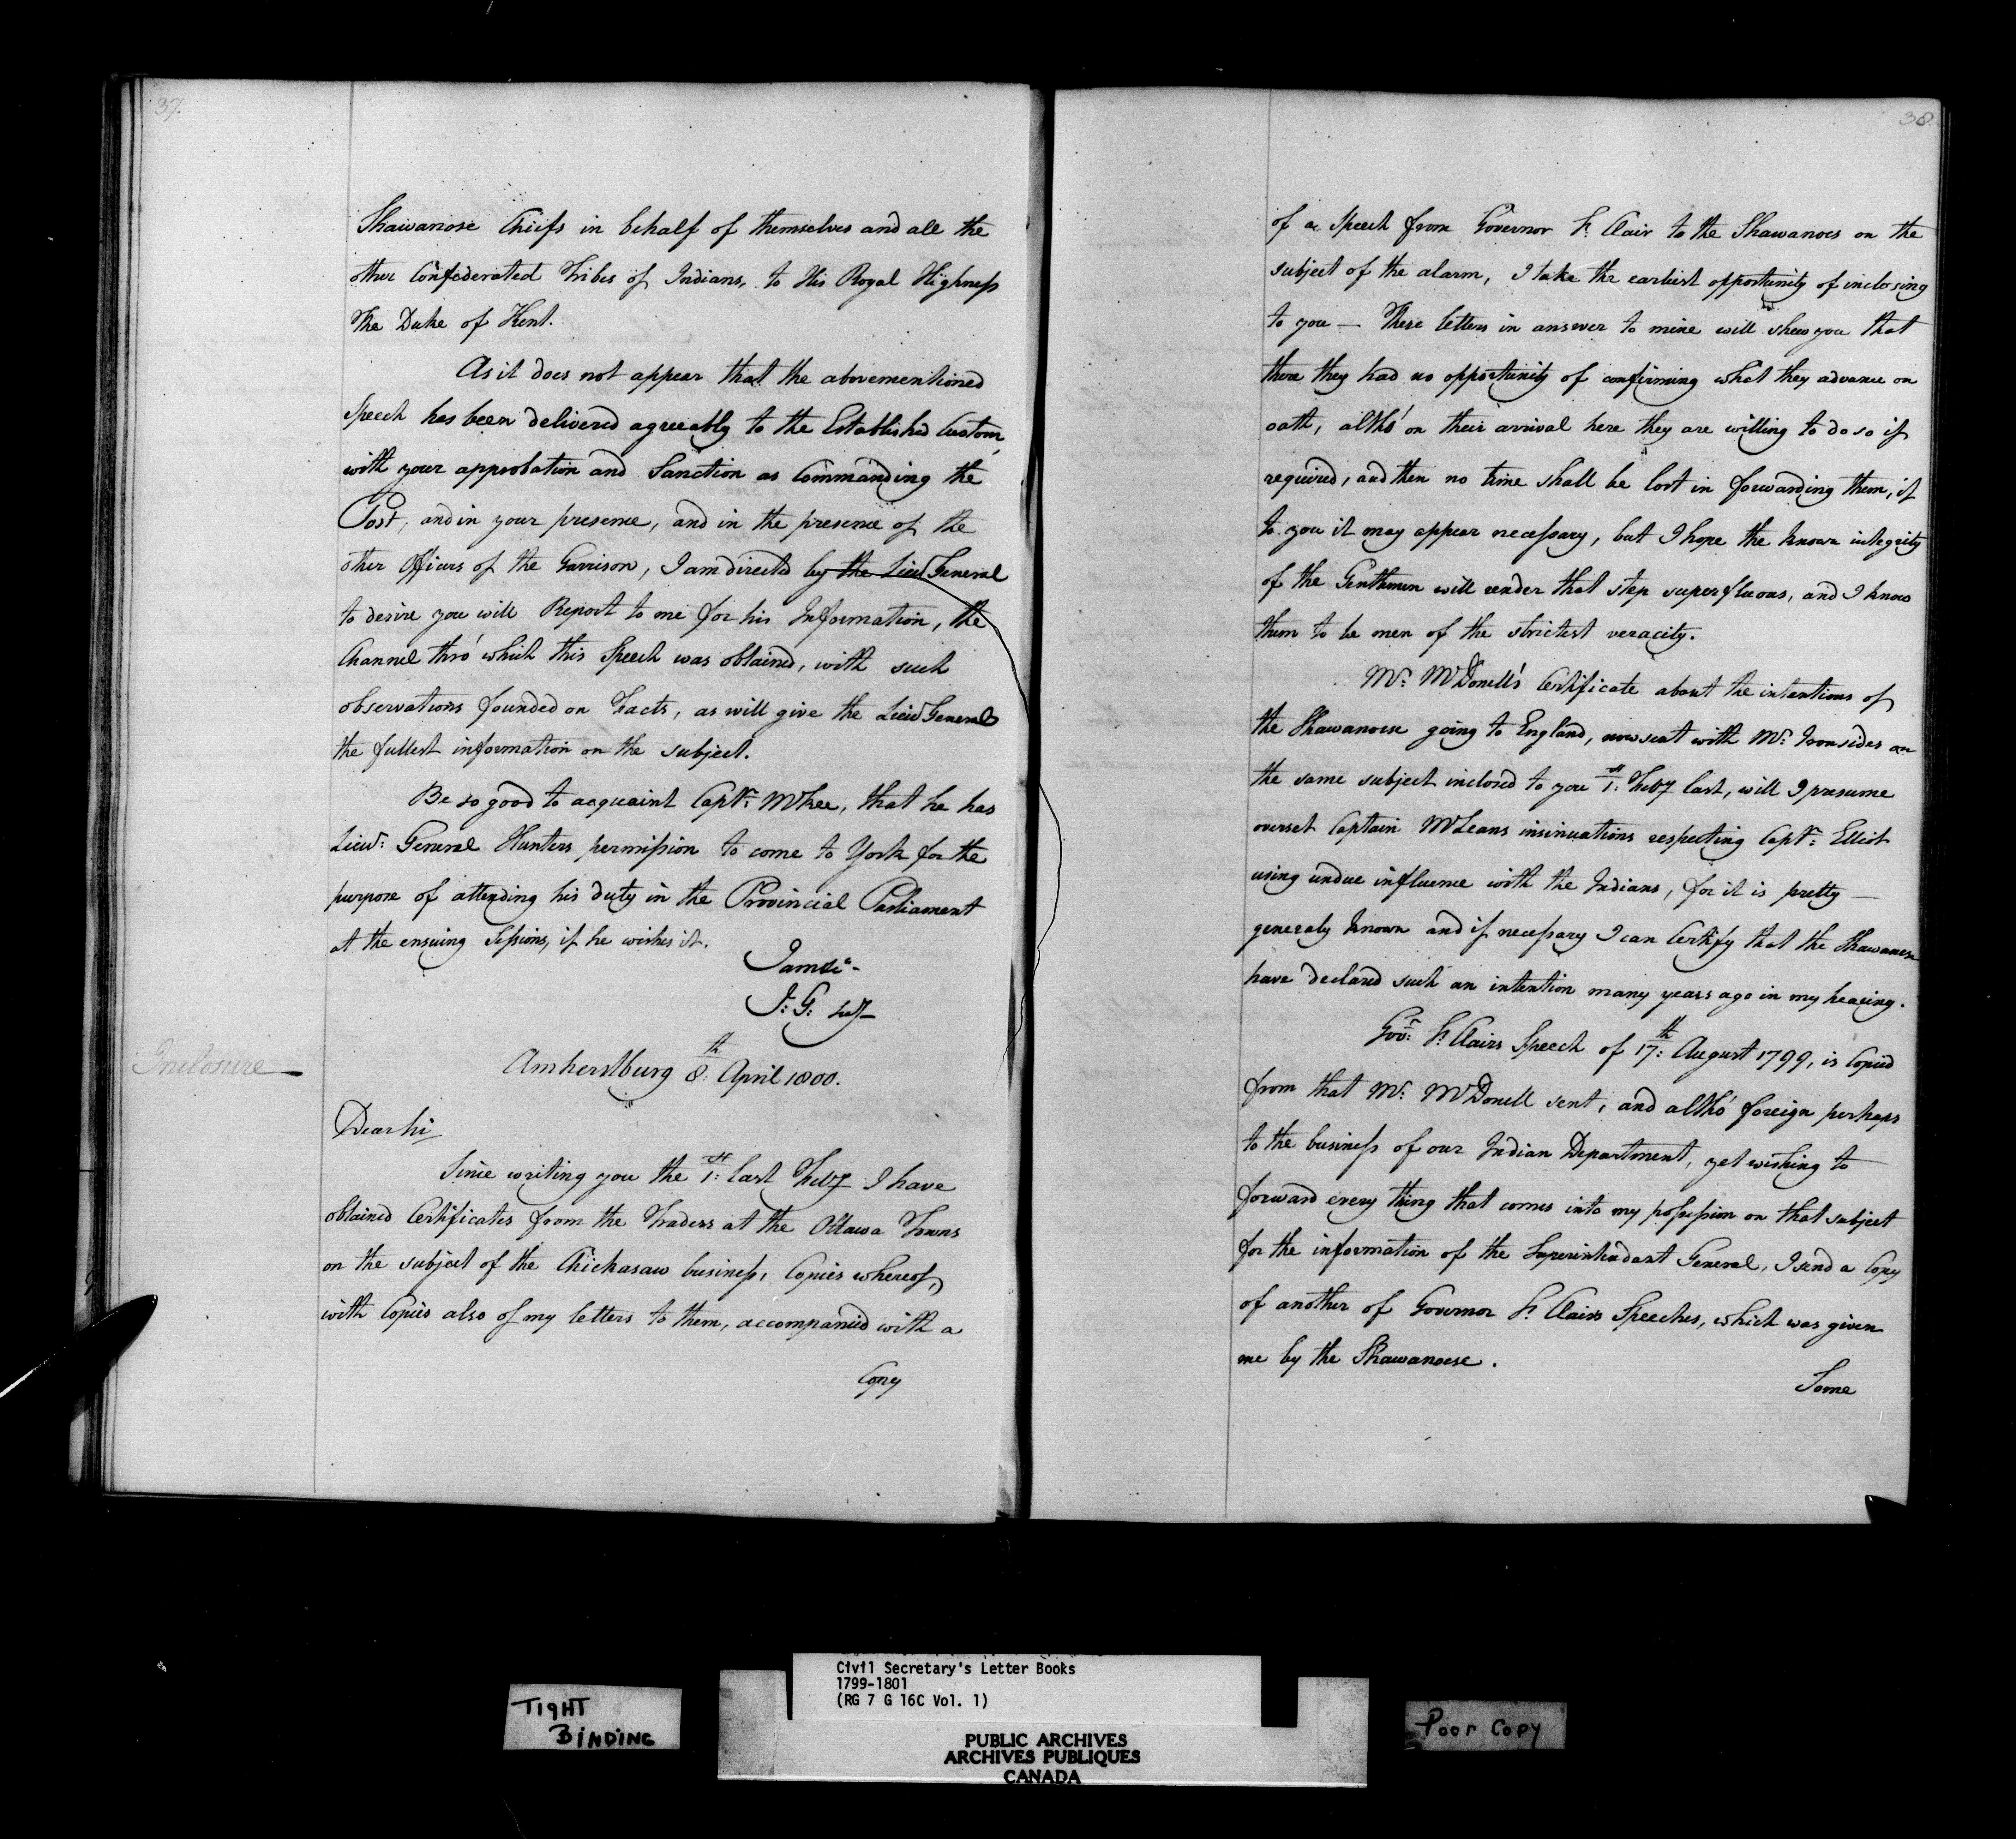 37.
Shawanose Chiefs in behalf of themselves and all the
other Confederated Tribes of Indians, to His Royal Highness
The Duke of Kent.
As it does not appear that the abovementioned
Speech has been delivered agreeably to the Established Custom,
with your approbation and Sanction as Commanding the
Post, and in your presence, and in the presence of the
other Officers of the Garrison, I am directed by the Lieut General
to desire you will Report to me for his Information, the
Channel thro' which this Speech was obtained, with such
observations founded on Facts, as will give the Lieut General
the fullest information on the subject.
Be so good to acquaint Captn: McKee, that he has
Lieut: General Hunters permission to come to York for the
purpose of attending his duty in the Provincial Parliament
at the ensuing Sessions, if he wishes it.
I am &c-
J: G:
Inclosure
Amherstburg 8th: April 1800.
Dear Sir
Since writing you the 1st: last Feby I have
obtained Certificates from the Traders at the Ottawa Towns
on the subject of the Chickasaw business, Copies whereof,
with Copies also of my letters to them, accompanied with a
Copy
38.
of a Speech from Governor St. Clair to the Shawanoes on the
subject of the alarm, I take the earliest opportunity of inclosing
to you — These letters in answer to mine will shew you that
there they had no opportunity of confirming what they advance on
oath, altho' on their arrival here they are willing to do so if
required, and then no time shall be lost in forwarding them, if
to you it may appear necessary, but I hope the known integrity
of the Gentlemen will render that step superfluous, and I know
them to be men of the strictest veracity.
Mr: McDonell's Certificate about the intentions of
the Shawanoese going to England, now sent with Mr: Ironsides on
the same subject inclosed to you 1st: Feby last, will I presume
overset Captain McLeans insinuations respecting Captn: Elliot
using undue influence with the Indians, for it is pretty —
generaly known and if necessary I can Certify that the Shawanese
have declared such an intention many years ago in my hearing.
Govr: St. Clairs Speech of 17th: August 1799, is Copied
from that Mr: McDonell sent, and altho' foreign perhaps
to the business of our Indian Department, yet wishing to
forward every thing that comes into my possession on that subject
for the information of the Superintendant General, I send a Copy
of another of Governor St. Clairs Speeches, which was given
me by the Shawanoese.
Some
TIGHT
BINDING
Civil Secretary's Letter Books
1799-1801
(RG 7 G 16C Vol. 1)
PUBLIC ARCHIVES
ARCHIVES PUBLIQUES
CANADA
Poor Copy